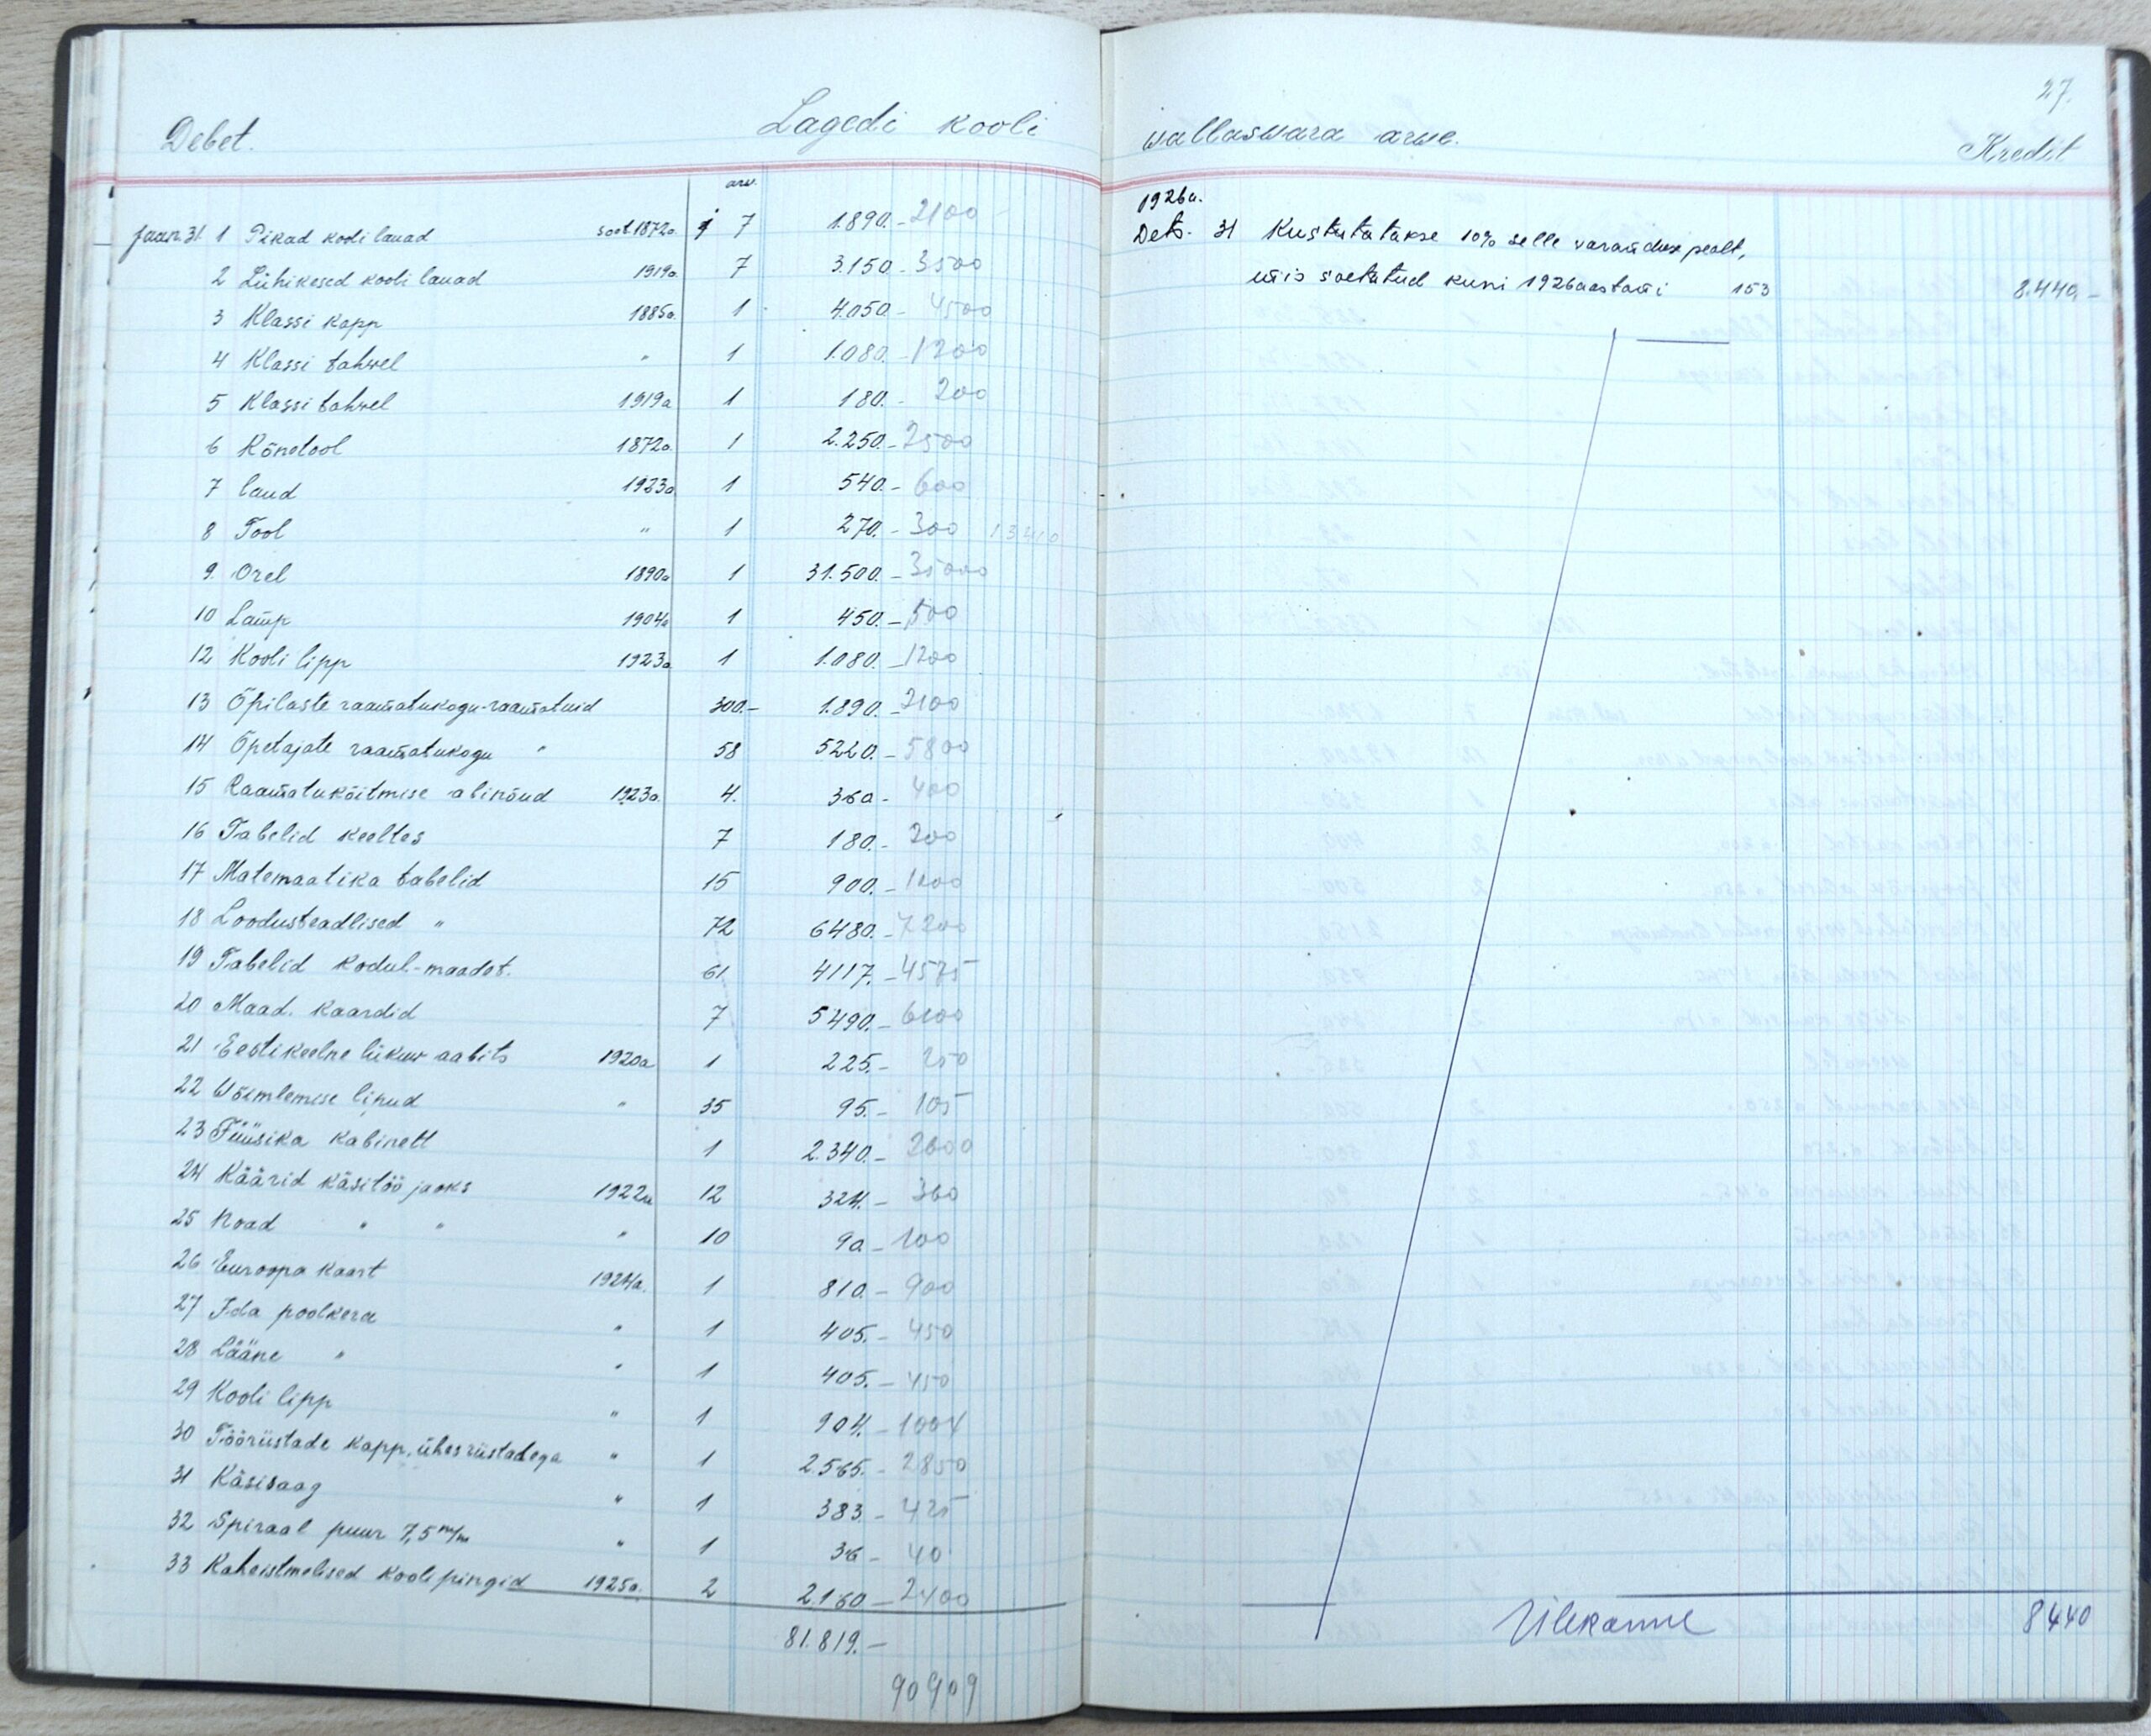 Debet. Lagedi kooli
arv.
Jaan. 31. 1 Pikad kooli lauad soet 1872a. 7 1.890.- 2100
2 Lühikesed kooli lauad 1919a. 7 3.150.- 3500
3 Klassi kapp 1885a. 1 4.050.- 4500
4 Klassi tahvel " 1 1.080.- 1200
5 Klassi tahvel 1919a 1 180.- 200
6 Kõnetool 1872a. 1 2.250.- 2500
7 laud 1923a 1 540.- 600
8 Tool " 1 270.- 300 13410
9. Orel 1890a 1 31.500.- 35000
10 Lamp 1904a 1 450.- 500
12 Kooli lipp 1923a 1 1.080.- 1200
13 Õpilaste raamatukogu-raamatuid 300.- 1.890.- 2100
14 Õpetajate raamatukogu " 58 5220.- 5800
15 Raamatuköitmise abinõud 1923a. 4. 360.- 400
16 Tabelid keeltes 7 180.- 200
17 Matemaatika tabelid 15 900.- 1000
18 Loodusteadlised " 72 6480.- 7200
19 Tabelid kodul-maadet. 61. 4117.- 4575
20 Maad. kaardid 7 5490.- 6100
21 Eestikeelne liikuv aabits 1920a 1 225.- 250
22 Wõimlemise lipud " 35 95.- 105
23 Füüsika kabinett 1 2.340.- 2600
24 Käärid käsitöö jaoks 1922a 12 324.- 360
25 Noad " " " 10 90 - 100
26 Euroopa kaart 1924a. 1 810.- 900
27 Ida poolkera " 1 405.- 450
28 Lääne " " 1 405.- 450
29 Kooli lipp " 1 904.- 1004
30 Tööriistade kapp, ühes riistadega " 1 2.565.- 2850
31 Käsisaag " 1 383.- 425
32 Spiraal puur 7,5 m/m " 1 36 - 40
33 Kaheistmelised koolipingid 1925a. 2 2.160 - 2400
81.819.-
90909
27.
wallaswara arwe. Kredit
1926a.
Dets. 31 Kustutatakse 10% selle varanduse pealt,
mis soetatud kuni 1926 aastani 153 8.440.-
Ülekanne 8440